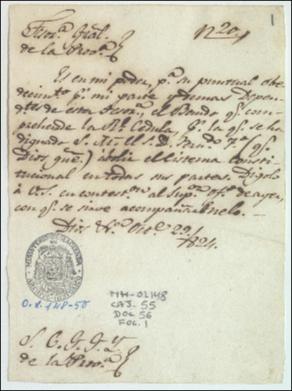 1
Tesor.a Gral.
de la Prov.a
N.º 20
Es en mi poder, p.a su puntual obe-
decimto. p.r mi parte y demas Depen-
d.tes de esta Tesor.a el Bando q.e com-
prehende la Rl. Cedula, p.r la q.e se ha
dignado S. M. el S. D. Fern.do 7.º (q.e
Dios gue.) abolir el Sistema consti-
tucional en todas sus partes. Digolo
á V.S. en contestn. al Sup.or of.o de ayer,
con q.e se sirve acompañarmelo.
Dios
Oct.e 22/1824.
MINISTERIO DE HACIENDA
O.L. 148-56
MH-OL148
CAJ. 55
DOC 56
FOL. 1
S. G. I. Y
de la Prov.a